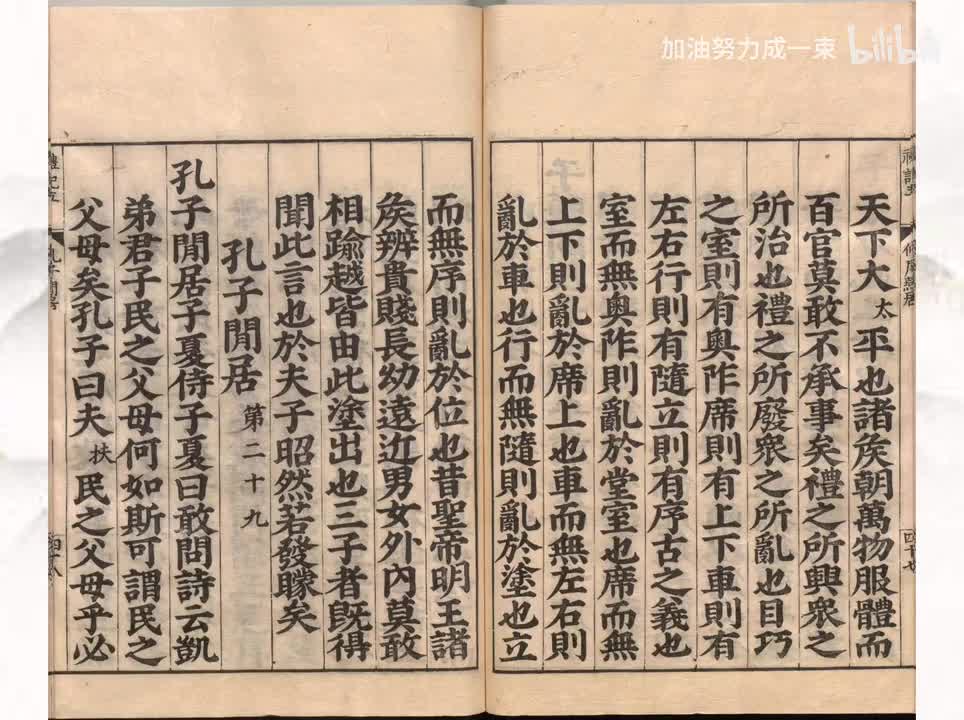 加油努力成一束 bilibili
天下大太平也諸矦朝萬物服體而
百官莫敢不承事矣禮之所興衆之
所治也禮之所廢衆之所亂也目巧
之室則有奧阼席則有上下車則有
左右行則有隨立則有序古之義也
室而無奧阼則亂於堂室也席而無
上下則亂於席上也車而無左右則
亂於車也行而無隨則亂於塗也立
而無序則亂於位也昔聖帝明王諸
矦辨貴賤長幼遠近男女外內莫敢
相踰越皆由此塗出也三子者旣得
聞此言也於夫子昭然若發矇矣
孔子閒居 第二十九
孔子閒居子夏侍子夏曰敢問詩云凱
弟君子民之父母何如斯可謂民之
父母矣孔子曰夫扶民之父母乎必
禮記五
孔子閒居
四十八
四十七